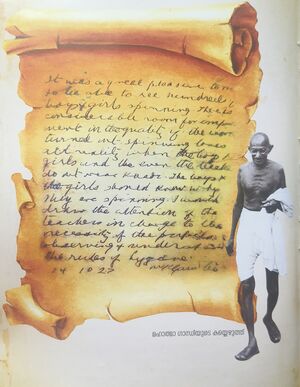 It was a great pleasure to me
to be able to see hundreds of
boys & girls spinning. There is
considerable room for improve-
ment in the quality of the work
turned out. Spinning loses
its reality when the boys &
girls and even the teachers
do not wear Khadi. The boys &
the girls should know why
they are spinning. I would
draw the attention of the
teachers in charge to the
necessity of the
observing & understanding
the rules of hygiene.
14 10 27 MK Gandhi
മഹാത്മാ ഗാന്ധിയുടെ കയ്യെഴുത്ത്